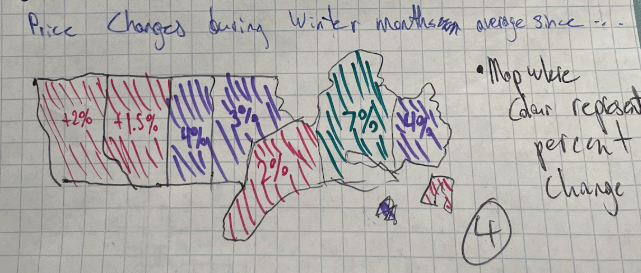 Price Changes during Winter months average since ...
+2% +1.5% 4% 3% 2% 7% 4%
• Map where
Colour represent
percent
change
4